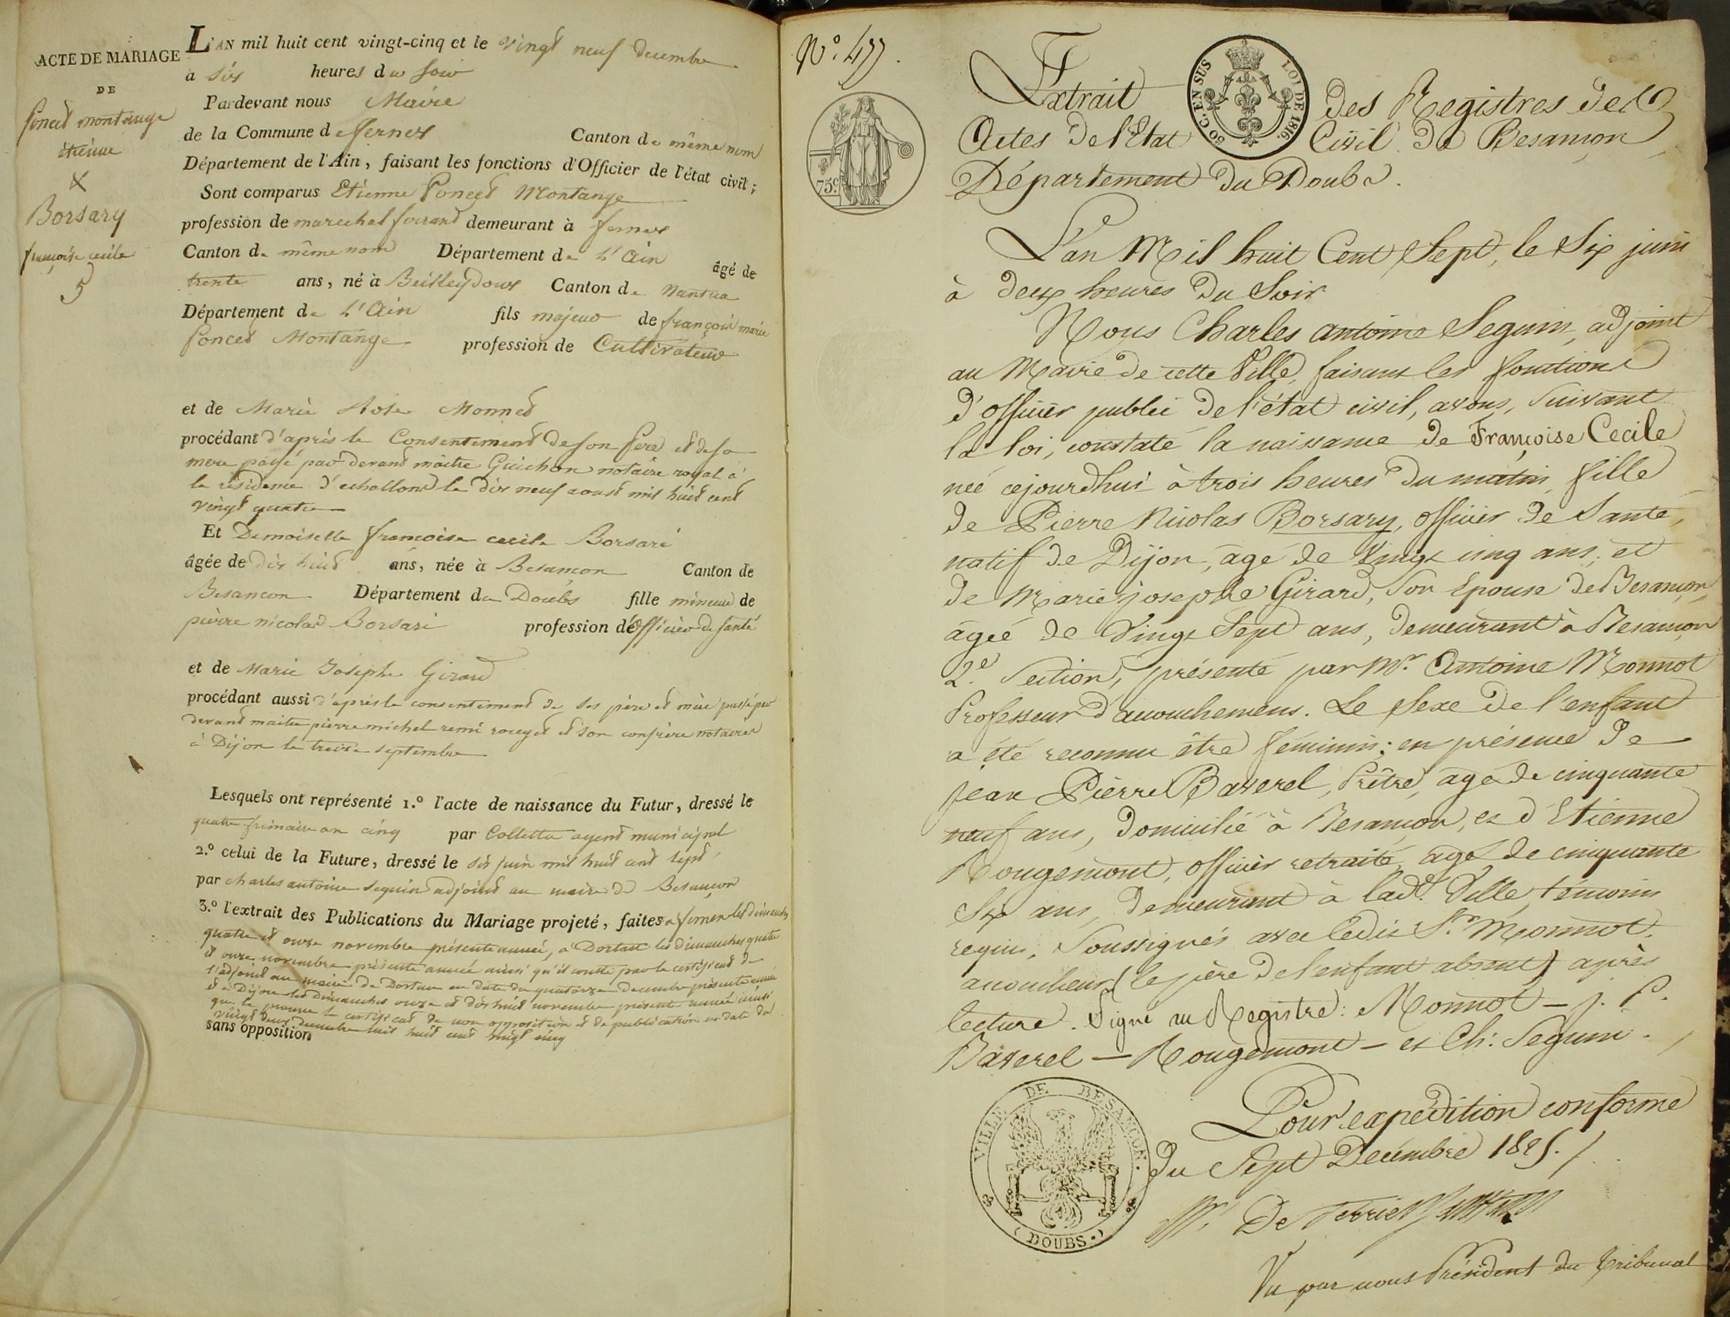 ACTE DE MARIAGE
DE
Poncet montange
étienne
X
Borsary
françoise cecile
5
L'AN mil huit cent vingt-cinq et le vingt neuf decembre
a six heures du soir
Pardevant nous Maire
de la Commune de fernex Canton de même nom
Département de l'Ain, faisant les fonctions d'Officier de l'état civil;
Sont comparus Etienne Poncet Montange
profession de marechal ferrant demeurant à fernex
Canton de même nom Département de L'Ain âgé de
trente ans, né à Canton de nantua
Département de L'Ain fils majeur de françois marie
Poncet Montange profession de Cultivateur
et de Marie Rose Monnet
procédant d'après le Consentement de son père et de sa
mere passé par devant maitre Guichon notaire royal à
la résidence d'echallon le dix neuf aoust mil huit cent
vingt quatre
Et Demoiselle francoise cecile Borsari
âgée de dix huit ans, née à Besancon Canton de
Besancon Département du Doubs fille mineure de
pierre nicolas Borsari profession de officier de santé
et de Marie Josephe Girard
procédant aussi d'après le consentement de ses père et mère passé par
devant maitre pierre michel remi et son confrère notaires
à Dijon le treize septembre
Lesquels ont représenté 1.º l'acte de naissance du Futur, dressé le
quatre frimaire an cinq par Colletta agent municipal
2.º celui de la Future, dressé le six juin mil huit cent sept
par charles antoine seguin adjoint au maire de Besançon
3.º l'extrait des Publications du Mariage projeté, faites a fernex les dimanches
quatre et onze novembre présente année, a Dortan les dimanches quatre
et onze novembre présente année ainsi qu'il conste par le certificat de
l'adjoint au maire de Dortan en date du quatorze decembre présente année
et a Dijon les Dimanches onze et dix huit novembre présente année ainsi
que le prouve le certificat de non opposition et de publication en date du
vingt deux decembre mil huit cent vingt cinq
sans opposition
N.º 477.
Extrait des Registres des
Actes de l'Etat Civil de Besançon
Département du Doubs.
50 C. EN SUS LOI DE 1816.
75 c
L'an Mil huit Cent Sept, le Six juin
à deux heures du Soir
Nous Charles antoine Seguin, adjoint
au Maire de cette Ville, faisant les fonctions
d'officier public de l'état civil, avons, suivant
la loi, constaté la naissance de Françoise Cecile
née cejourd'hui à trois heures du matin, fille
de Pierre Nicolas Borsary, officier de Santé,
natif de Dijon, âgé de vingt cinq ans, et
de Marie josephe Girard, son Epouse de Besançon,
âgée de vingt Sept ans, demeurant à Besançon
2.e Section, présenté par Mr. Antoine Monnot
Professeur d'accouchemens. Le Sexe de l'enfant
a été reconnu être féminin: en présence de
Jean Pierre Baverel, Prêtre, âgé de cinquante
neuf ans, domicilié à Besançon, et d'Etienne
Rougemont, officier retraité, âgé de cinquante
Six ans, demeurant à lad.e Ville, témoins
requis, soussignés avec ledit Sr. Monnot.
accoucheur (le père de l'enfant absent) après
lecture. Signé au Registre: Monnot – j. P.
Baverel – Rougemont – et Ch: Seguin.
VILLE DE BESANÇON.
(DOUBS.)
Pour expédition conforme
du Sept Décembre 1825.
Vu par nous Président du tribunal